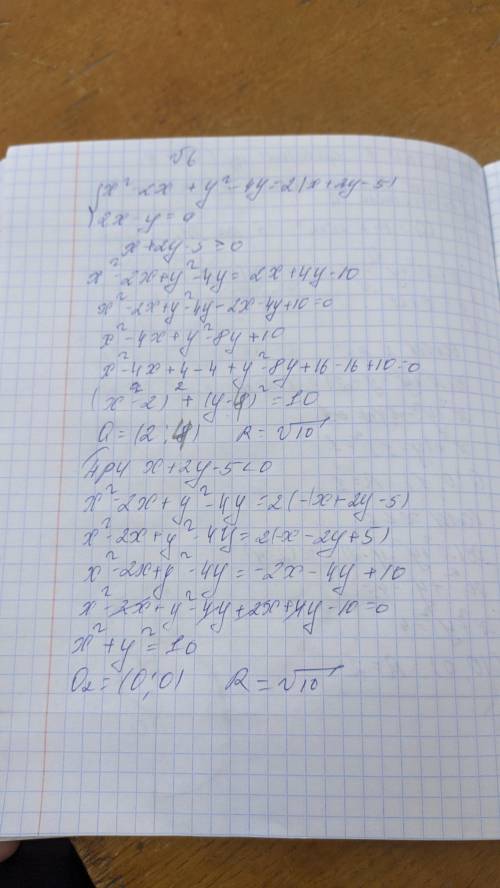 √6
{x² - 2x + y² - 4y = 2|x + 2y - 5|
2x - y = a
x + 2y - 5 > 0
x² - 2x + y² - 4y = 2x + 4y - 10
x² - 2x + y² - 4y - 2x - 4y + 10 = 0
x² - 4x + y² - 8y + 10
x² - 4x + 4 - 4 + y² - 8y + 16 - 16 + 10 = 0
(x² - 2)² + (y - 4)² = 10
O = (2; 4) R = √10
При x + 2y - 5 < 0
x² - 2x + y² - 4y = 2(-(x + 2y - 5)
x² - 2x + y² - 4y = 2(-x - 2y + 5)
x² - 2x + y² - 4y = -2x - 4y + 10
x² - 2x + y² - 4y + 2x + 4y - 10 = 0
x² + y² = 10
O₂ = (0; 0) R = √10